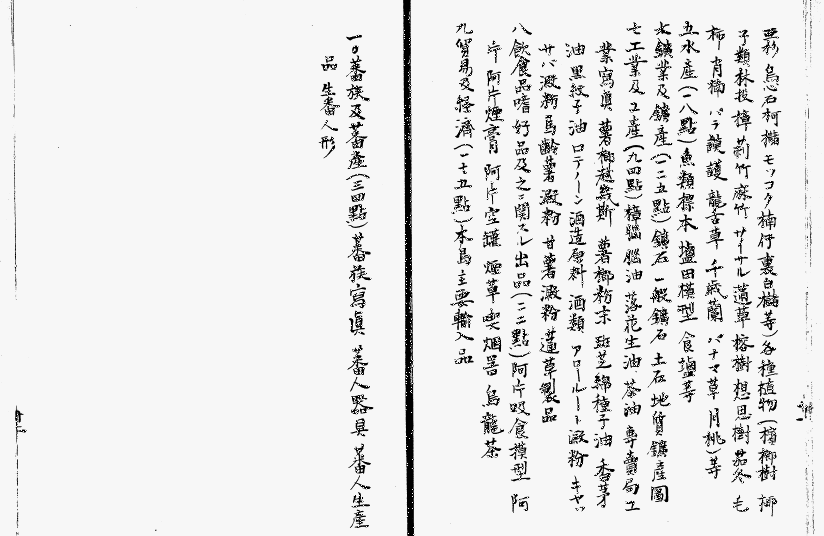 亜杉 烏心石 柯櫧 モツコク 楠仔 裏白樹等)各種植物(檳榔樹 椰
子類 林投 樟 莿竹 麻竹 サイサル 蓪草 榕樹 想思樹 茄苳 毛
柿 肖楠 パラ護謨 龍舌草 千歳蘭 パナマ草 月桃)等
五 水産(一八點)魚類標本 塩田模型 食塩等
六 鑛業及鑛産(一二五點)鑛石 一般鑛石 土石 地質鑛産圖
七 工業及工産(九四點)樟腦 腦油 落花生油 茶油 專賣局工
業寫眞 薯榔越幾斯 薯榔粉末 斑芝綿種子油 香茅
油 黒紋子油 ロテノーン 酒造原料 酒類 アロールート澱粉 キヤツ
サバ澱粉 馬齡薯澱粉 甘薯澱粉 蓪草製品
八 飲食品嗜好品及之ニ關スル出品(二二點)阿片吸食模型 阿
片 阿片煙膏 阿片空罐 煙草 喫烟器 烏龍茶
九 貿易及経濟(一七五點)本島主要輸入品
一〇 蕃族及蕃産(三四點)蕃族寫眞 蕃人器具 蕃人生産
品 生蕃人形